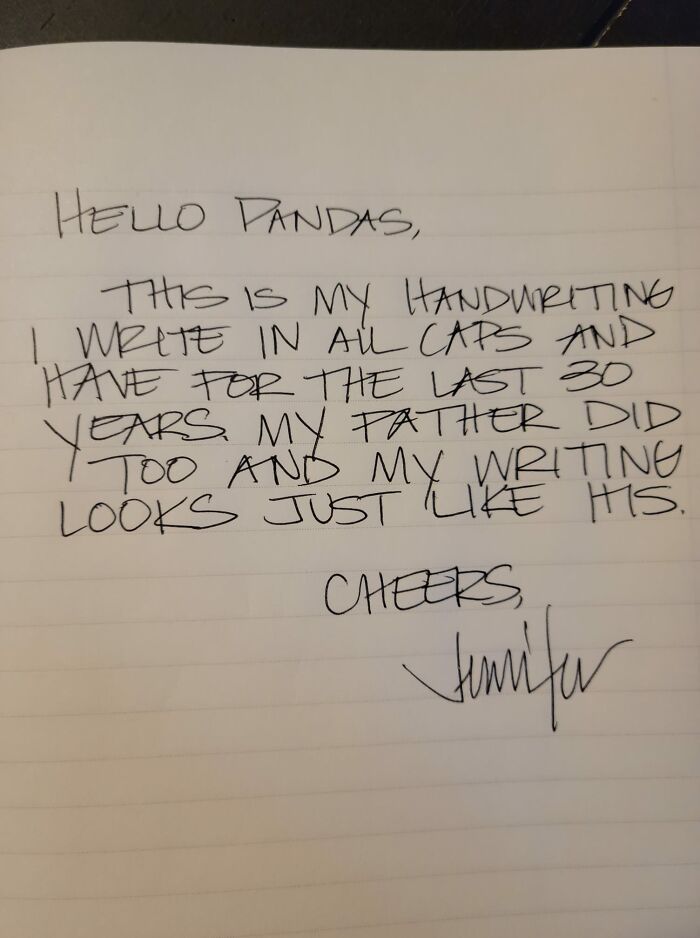 HELLO PANDAS,
THIS IS MY HANDWRITING
I WRITE IN ALL CAPS AND
HAVE FOR THE LAST 30
YEARS. MY FATHER DID
TOO AND MY WRITING
LOOKS JUST LIKE HIS.
CHEERS,
Jennifer